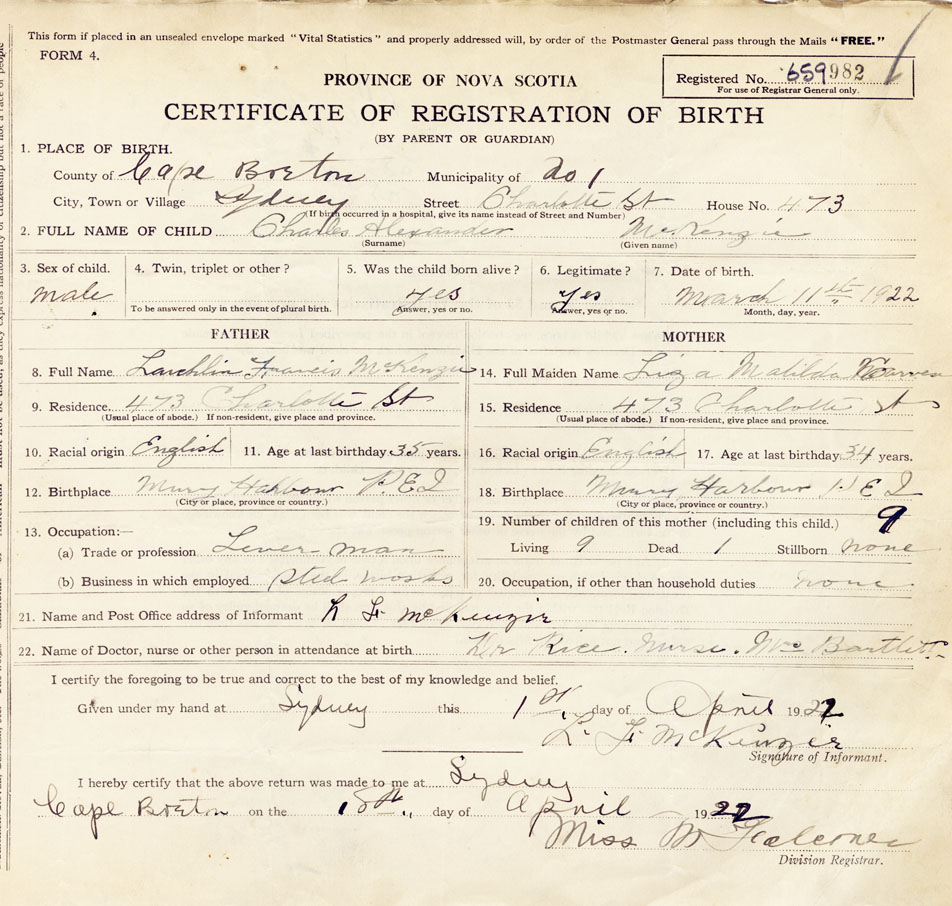 This form if placed in an unsealed envelope marked "Vital Statistics" and properly addressed will, by order of the Postmaster General pass through the Mails "FREE."
FORM 4.
Registered No. 659982
For use of Registrar General only.
PROVINCE OF NOVA SCOTIA
CERTIFICATE OF REGISTRATION OF BIRTH
(BY PARENT OR GUARDIAN)
1. PLACE OF BIRTH.
County of Cape Breton Municipality of no 1
City, Town or Village Sydney Street Charlotte St House No. 473
(If birth occurred in a hospital, give its name instead of Street and Number)
2. FULL NAME OF CHILD Charles Alexander McKenzie
(Surname) (Given name)
3. Sex of child. 4. Twin, triplet or other? 5. Was the child born alive? 6. Legitimate? 7. Date of birth.
male yes yes March 11th 1922
To be answered only in the event of plural birth. Answer, yes or no. Answer, yes or no. Month, day, year.
FATHER MOTHER
8. Full Name Lauchlin Francis McKenzie 14. Full Maiden Name Liza Matilda
9. Residence 473 Charlotte St 15. Residence 473 Charlotte St
(Usual place of abode.) If non-resident, give place and province. (Usual place of abode.) If non-resident, give place and province.
10. Racial origin English 11. Age at last birthday 35 years. 16. Racial origin English 17. Age at last birthday 34 years.
12. Birthplace Murry Harbour P.E.I 18. Birthplace Murry Harbour P E I
(City or place, province or country.) (City or place, province or country.)
13. Occupation:— 19. Number of children of this mother (including this child.) 9
(a) Trade or profession Lever man Living 9 Dead 1 Stillborn none
(b) Business in which employed steel works 20. Occupation, if other than household duties none
21. Name and Post Office address of Informant L F McKenzie
22. Name of Doctor, nurse or other person in attendance at birth Dr Rice. Nurse. Mrs Bartlett
I certify the foregoing to be true and correct to the best of my knowledge and belief.
Given under my hand at Sydney this 1st day of April 1922
L. F. McKenzie
Signature of Informant.
I hereby certify that the above return was made to me at Sydney
Cape Breton on the 18th day of April 1922
Miss M Falconer
Division Registrar.